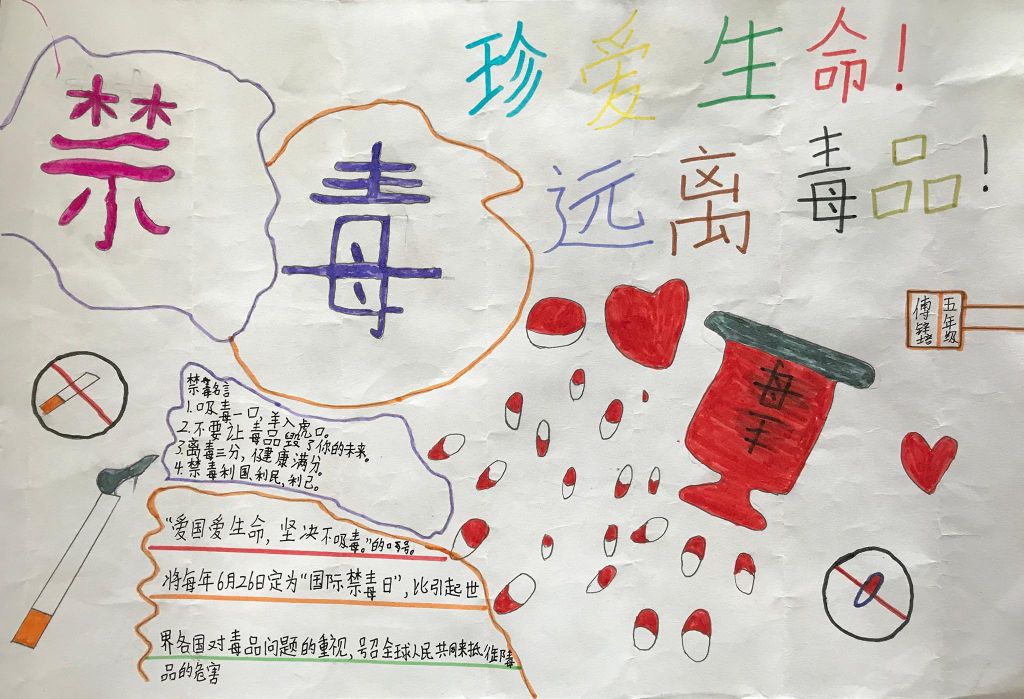 禁
毒
珍爱生命!
远离毒品!
五年级
傅
毒
禁毒名言
1.吸毒一口,羊入虎口。
2.不要让毒品毁了你的未来。
3.离毒三分,健康满分。
4.禁毒利国,利民,利己。
“爱国爱生命,坚决不吸毒。”的口号。
将每年6月26日定为“国际禁毒日”,比引起世
界各国对毒品问题的重视,号召全球人民共同来抵御毒
品的危害